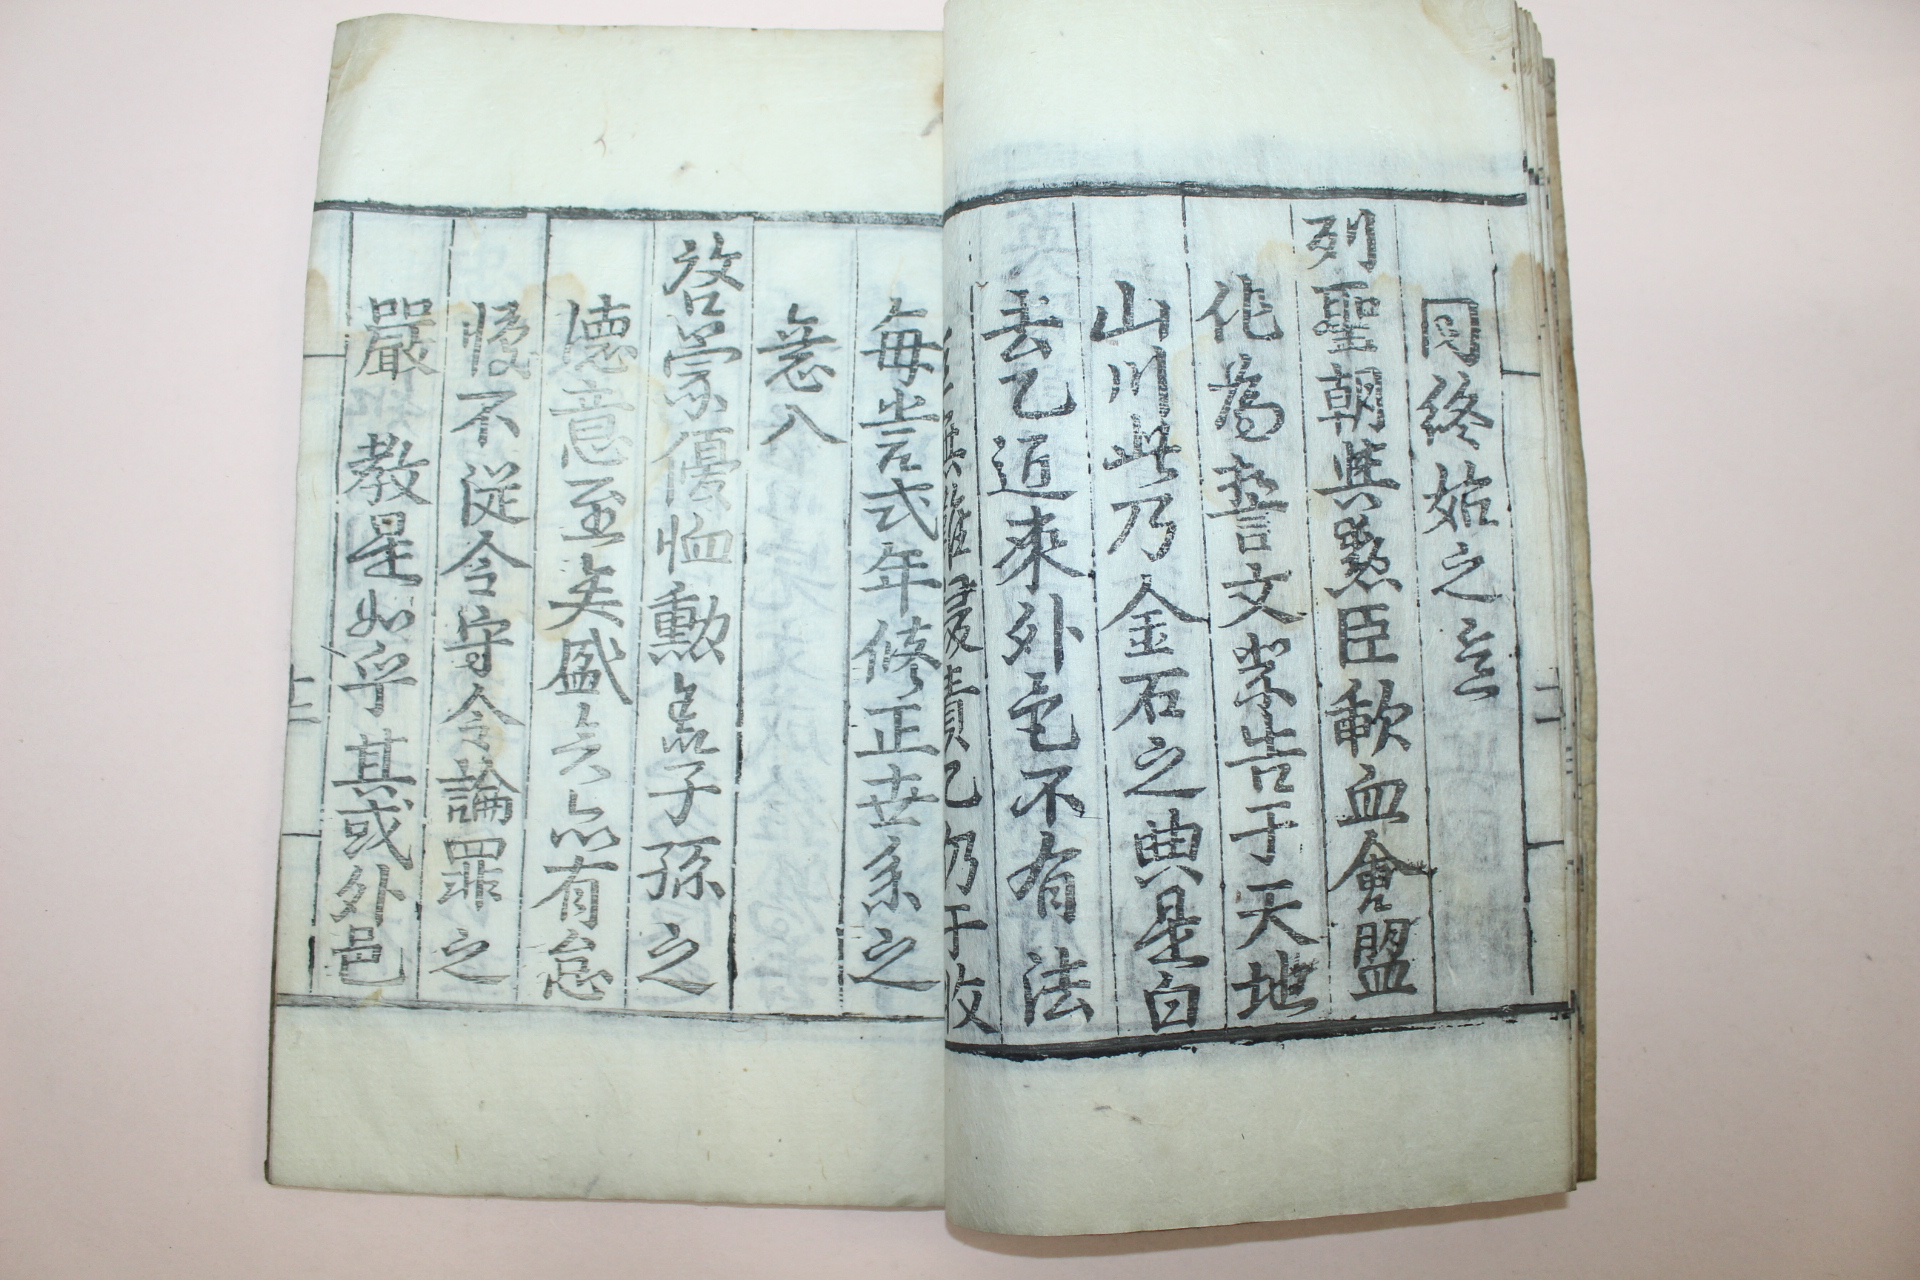 同終始之意
列聖朝與勳臣歃血會盟
作為誓文祭告于天地
山川此乃金石之典是白
去乙近來外邑不有法
責乙仍于收
每當式年修正世系之
意八
啓蒙優恤勳裔子孫之
德意至矣盛矣亦有怠
慢不從令守令論罪之
嚴教是如乎其或外邑
十二